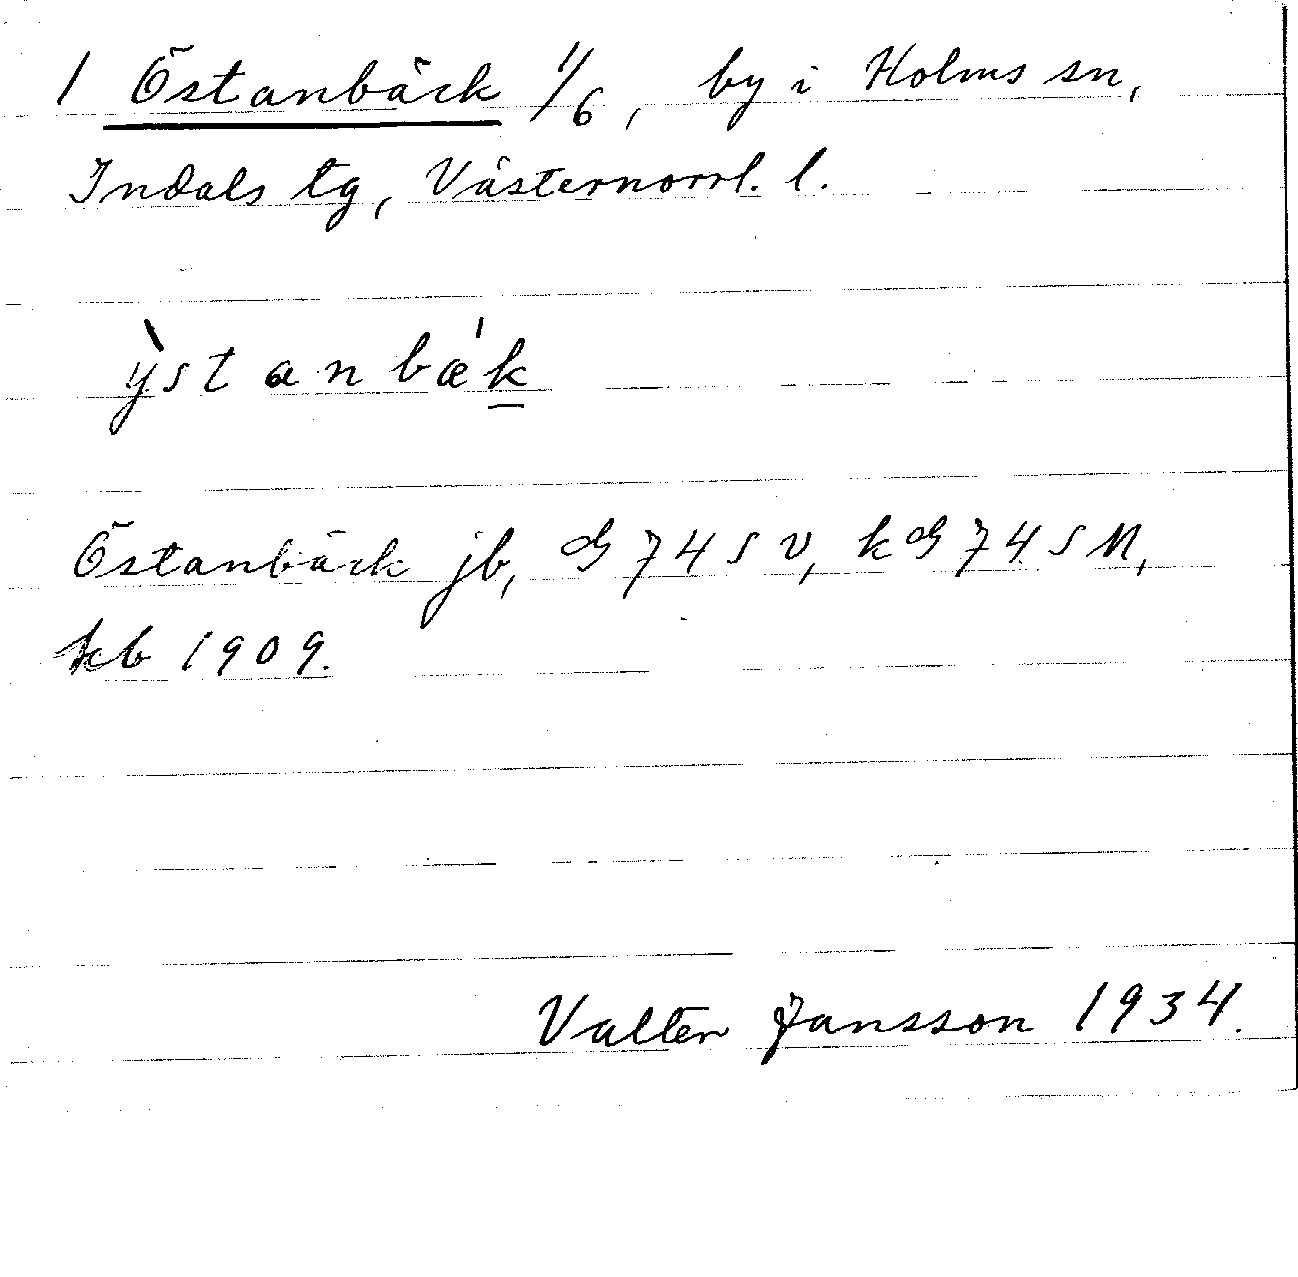 1 Östanbäck 1/6, by i Holms sn,
Indals tg, Västernorrl. l.
ỳstanbæ'k
Östanbäck jb, GS 74 SV, kGS 74 SN,
kb 1909.
Valter Jansson 1934.